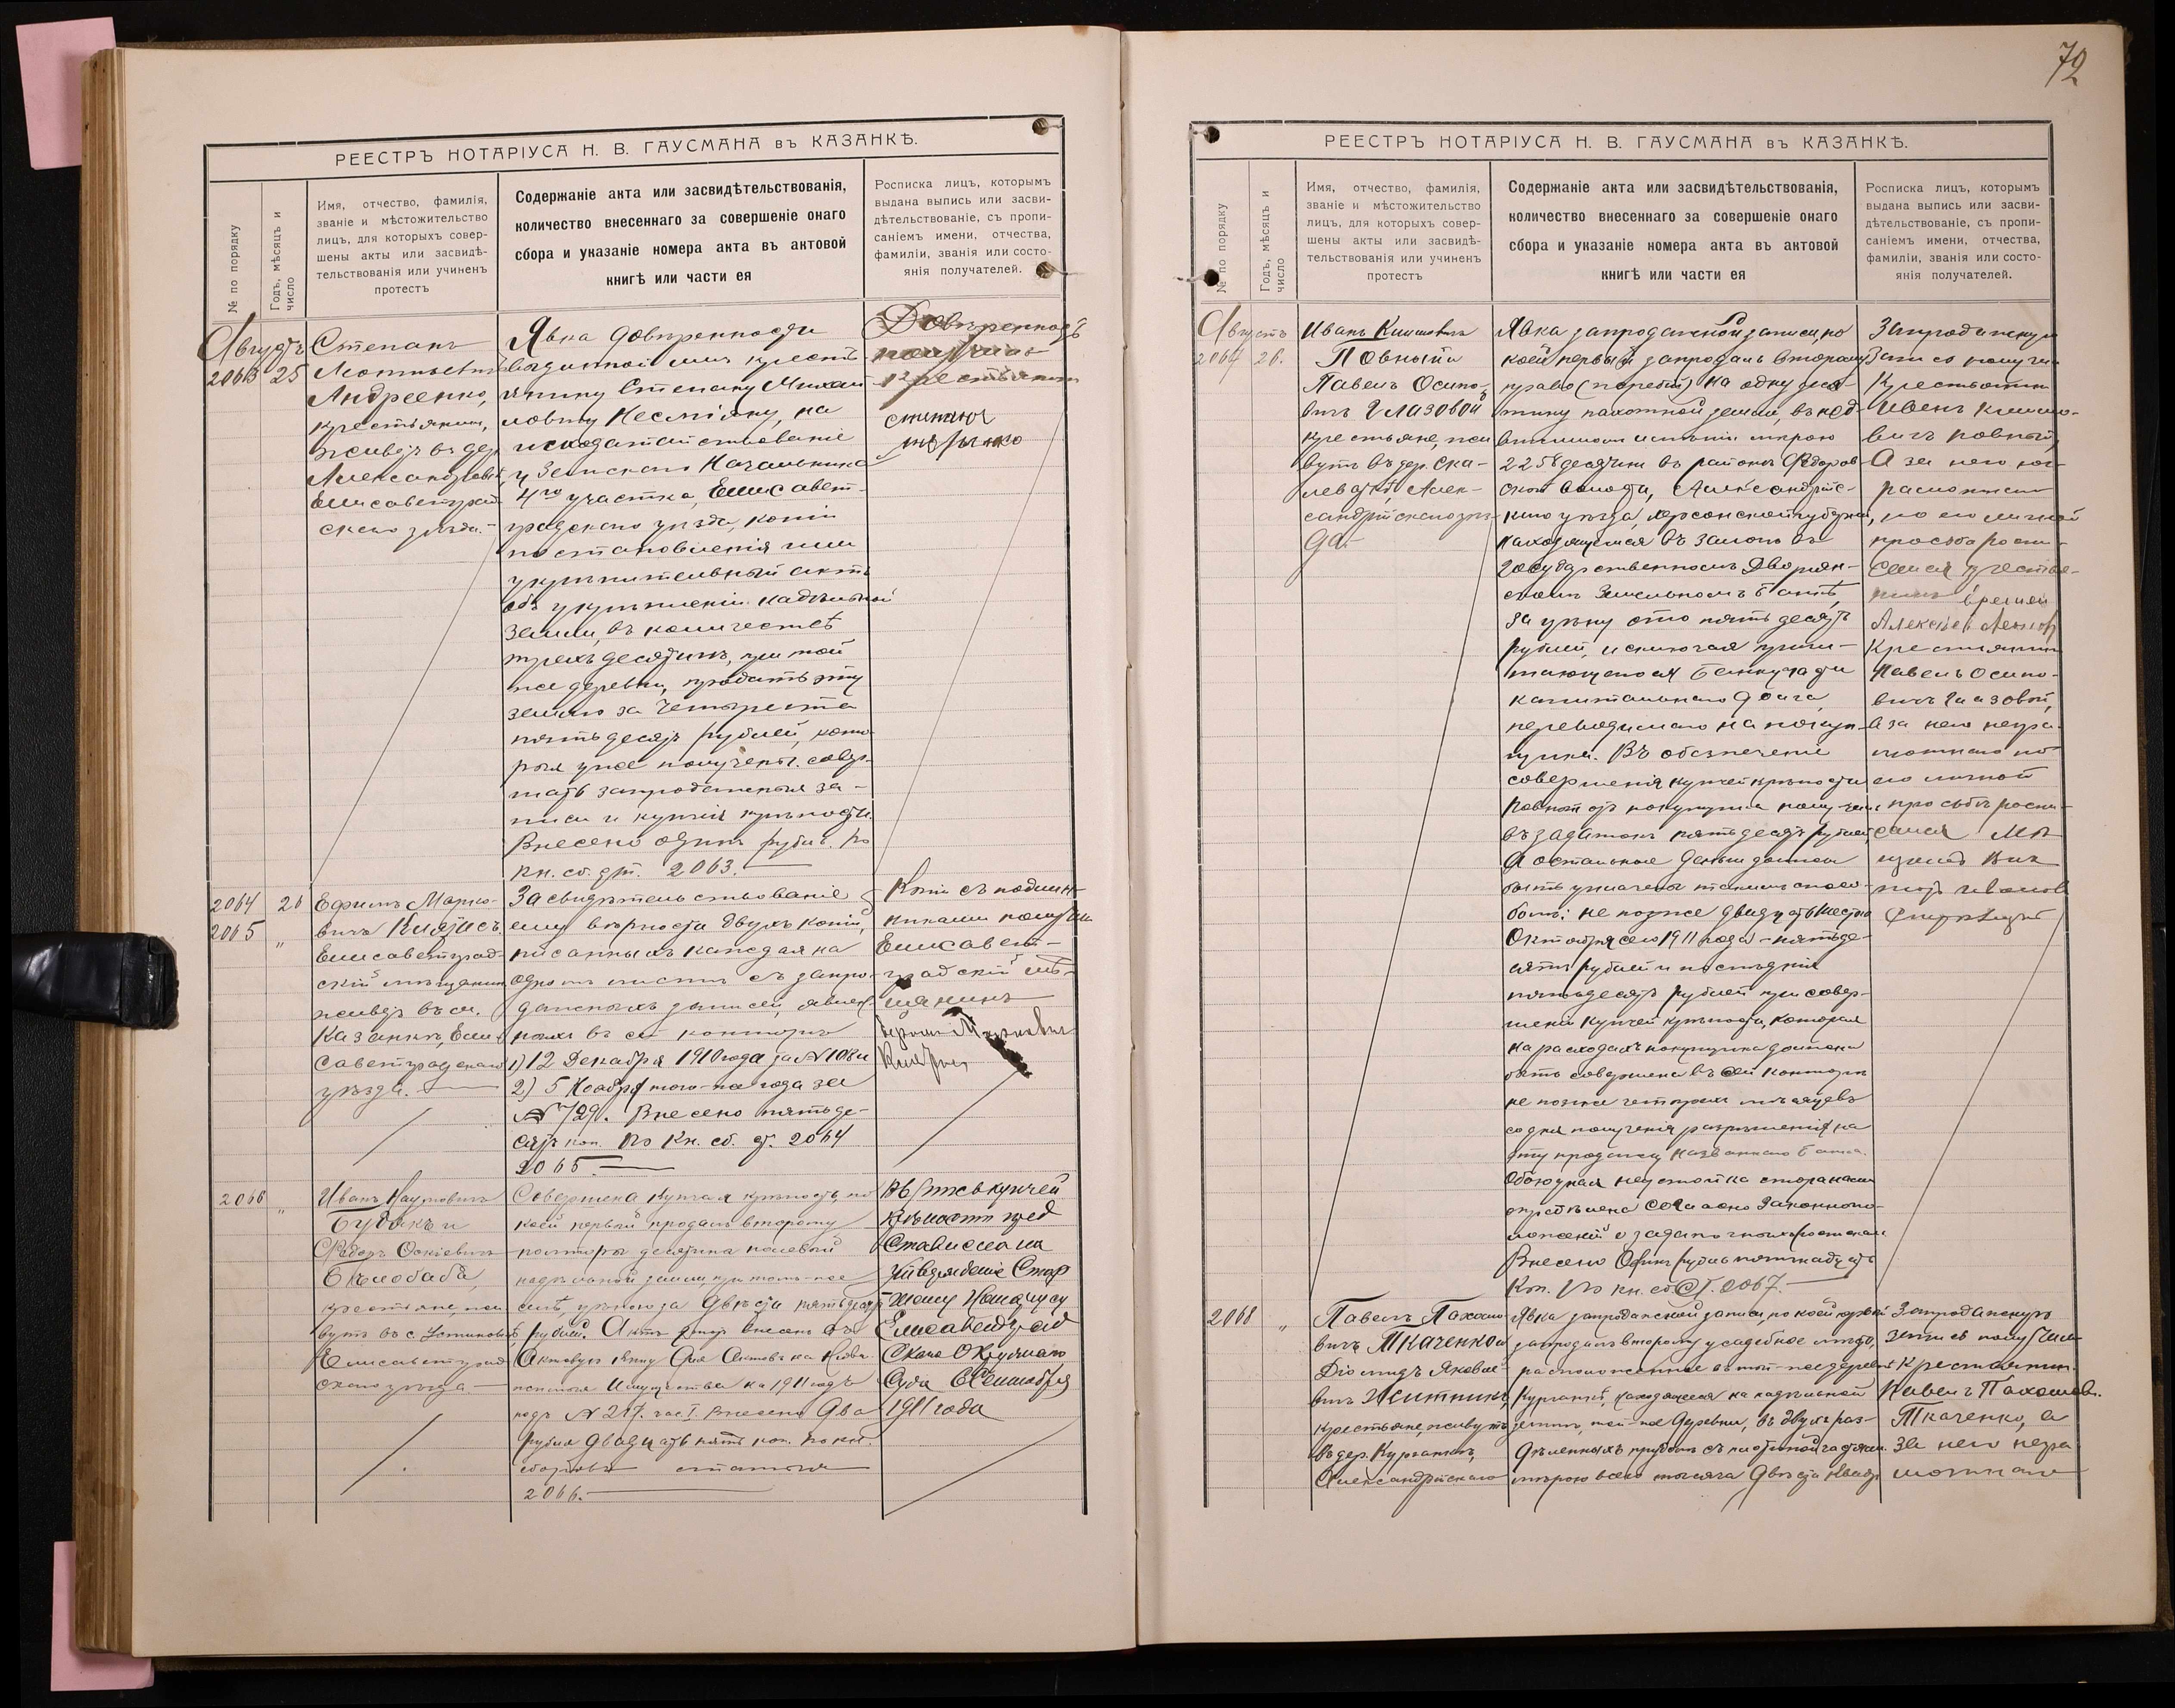 72
РЕЕСТРЪ НОТАРІУСА Н. В. ГАУСМАНА въ КАЗАНКѢ.
№ по порядку
Годъ, мѣсяцъ и число
Имя, отчество, фамилія,
званіе и мѣстожительство
лицъ, для которыхъ совер-
шены акты или засвидѣ-
тельствованія или учиненъ
протестъ
Содержаніе акта или засвидѣтельствованія,
количество внесеннаго за совершеніе онаго
сбора и указаніе номера акта въ актовой
книгѣ или части ея
Росписка лицъ, которымъ
выдана выпись или засви-
дѣтельствованіе, съ пропи-
саніемъ имени, отчества,
фамиліи, званія или состо-
янія получателей.
Августъ
2063 25
Степанъ
Леонтьевичъ
Андреенко,
крестьянинъ,
живетъ въ дер.
Александровкѣ,
Елисаветград-
скаго уѣзда.-
Явка довѣренности
выданной имъ кресть-
янину Степану Михай-
ловичу Несмiяну, на
исходатайствованіе
у Земскаго Начальника
4го участка, Елисавет-
градскаго уѣзда, копіи
постановленія или
укрѣпительный актъ
объ укрѣпленіи надѣльной
земли, въ количествѣ
трехъ десятинъ, при той
же деревни, продать эту
землю за четыреста
пятьдесятъ рублей, кото-
рыя уже получены. совер-
шать запродажныя за-
писи и купчія крѣпости.
Внесено одинъ рубль. По
кн. сб. ст. 2063.
Довѣренность
получилъ
крестьянинъ
степанъ
2064 26
2065 „
Ефимъ Марко-
вичъ Князисъ.
Елисаветград-
скій мѣщанинъ
живетъ въ м.
Казанкѣ, Ели-
саветградскаго
уѣзда.
Засвидѣтельствованіе
ему вѣрности двухъ копій,
писанныхъ каждая на
одномъ листѣ съ запро-
дажныхъ записей, явлен-
ныхъ въ сей конторѣ
1) 12 Декабря 1910 года за №1082 и
2) 5 Ноября того-же года за
№ 729. Внесено пятьде-
сятъ коп. По кн. сб. ст. 2064
2065.
Копіи съ подлин-
никами получилъ
Елисавет-
градскій мѣ-
щанинъ
Ефимъ Марковичъ
2066 „
Иванъ Наумовичъ
Будакъ и
Ѳедоръ Осиевичъ
Бѣлобаба,
крестьяне, жи-
вутъ въ с. Устиновкѣ,
Елисаветград-
скаго уѣзда.
Совершена купчая крѣпость, по
коей первый продалъ второму
полторы десятины полевой
надѣльной земли, при томъ-же
селѣ, цѣною за двѣсти пятьдесятъ
рублей. Актъ этотъ внесенъ въ
Актовую книгу для Актовъ на Недви-
жимыя Имущества на 1911 годъ
подъ № 217. час. I. Внесено два
рубля двадцать пять коп. По кн.
сборовъ статья
2066.
Выпись купчей
крѣпости пред
ставлена на
утвержденіе Стар
шему Нотаріусу
Елисаветград
скаго Окружнаго
Суда 6 Сентября
1911 года
РЕЕСТРЪ НОТАРІУСА Н. В. ГАУСМАНА въ КАЗАНКѢ.
№ по порядку
Годъ, мѣсяцъ и число
Имя, отчество, фамилія,
званіе и мѣстожительство
лицъ, для которыхъ совер-
шены акты или засвидѣ-
тельствованія или учиненъ
протестъ
Содержаніе акта или засвидѣтельствованія,
количество внесеннаго за совершеніе онаго
сбора и указаніе номера акта въ актовой
книгѣ или части ея
Росписка лицъ, которымъ
выдана выпись или засви-
дѣтельствованіе, съ пропи-
саніемъ имени, отчества,
фамиліи, званія или состо-
янія получателей.
Августъ
2067 26.
Иванъ Климовичъ
Повный и
Павелъ Осипо-
вичъ Глазовой
крестьяне, жи-
вутъ въ дер. Ска-
леваткѣ, Алек-
сандрійскаго уѣз-
да.
Явка запродажной записи, по
коей первый запродалъ второму
право (          ) на одну деся-
тину пахотной земли, въ нед-
вижимомъ имѣніи мѣрою
225 8 десятинъ въ районѣ Ѳедоров-
ской волости, Александрій-
скаго уѣзда, Херсонской губерніи,
находящемся въ залогѣ въ
Государственномъ Дворян-
скомъ Земельномъ Банкѣ,
за цѣну сто пятьдесятъ
рублей, исключая причи-
тающуюся Банку части
капитальнаго долга,
переводимаго на покуп-
щика. Въ обезпеченіе
совершенія купчей крѣпости
Повный отъ покупщика получилъ
въ задатокъ пятьдесятъ рублей,
а остальныя деньги должны
быть уплачены такимъ спосо-
бомъ: не позже двадцать шестого
Октября сего 1911 года - пятьде-
сятъ рублей и послѣднія
пятьдесятъ рублей при совер-
шеніи купчей крѣпости, которая
на расходахъ покупщика должна
быть совершена въ сей конторѣ
не позже четырехъ мѣсяцевъ
со дня полученія разрѣшенія на
эту продажу названнаго Банка.
Обоюдная неустойка сторонами
опредѣлена согласно Законопо-
ложеній о задаточныхъ роспискахъ
Внесено Одинъ рубль пятнадцать
коп. По кн. сб. ст. 2067.
Запродажную
запись получилъ
Крестьянинъ
Иванъ Климо-
вичъ Повный,
А за него не-
грамотнаго
по его личной
просьбѣ роспи-
сался крестья-
нинъ
Алексѣй
Крестьянинъ
Павелъ Осипо-
вичъ Глазовой,
а за него негра-
мотнаго по
его личной
просьбѣ роспи-
сался Мѣ
щанинъ Вик
торъ Ивановъ
2068 „
Павелъ Пахомо-
вичъ Ткаченко и
Діомидъ Яковле-
вичъ Житникъ,
крестьяне, живутъ
въ дер. Курганкѣ,
Александрійскаго
Явка запродажной записи, по коей первый
запродалъ второму усадебное мѣсто,
расположенное въ той-же деревнѣ
Курганкѣ, находящееся на надѣльной
землѣ, той-же деревни, въ двухъ раз-
дѣленныхъ прудомъ съ плотиной частяхъ.
мѣрою всего тысяча двѣсти квадр.
Запродажную
запись получилъ
Крестьянинъ
Павелъ Пахомов.
Ткаченко, а
за него негра
мотнаго